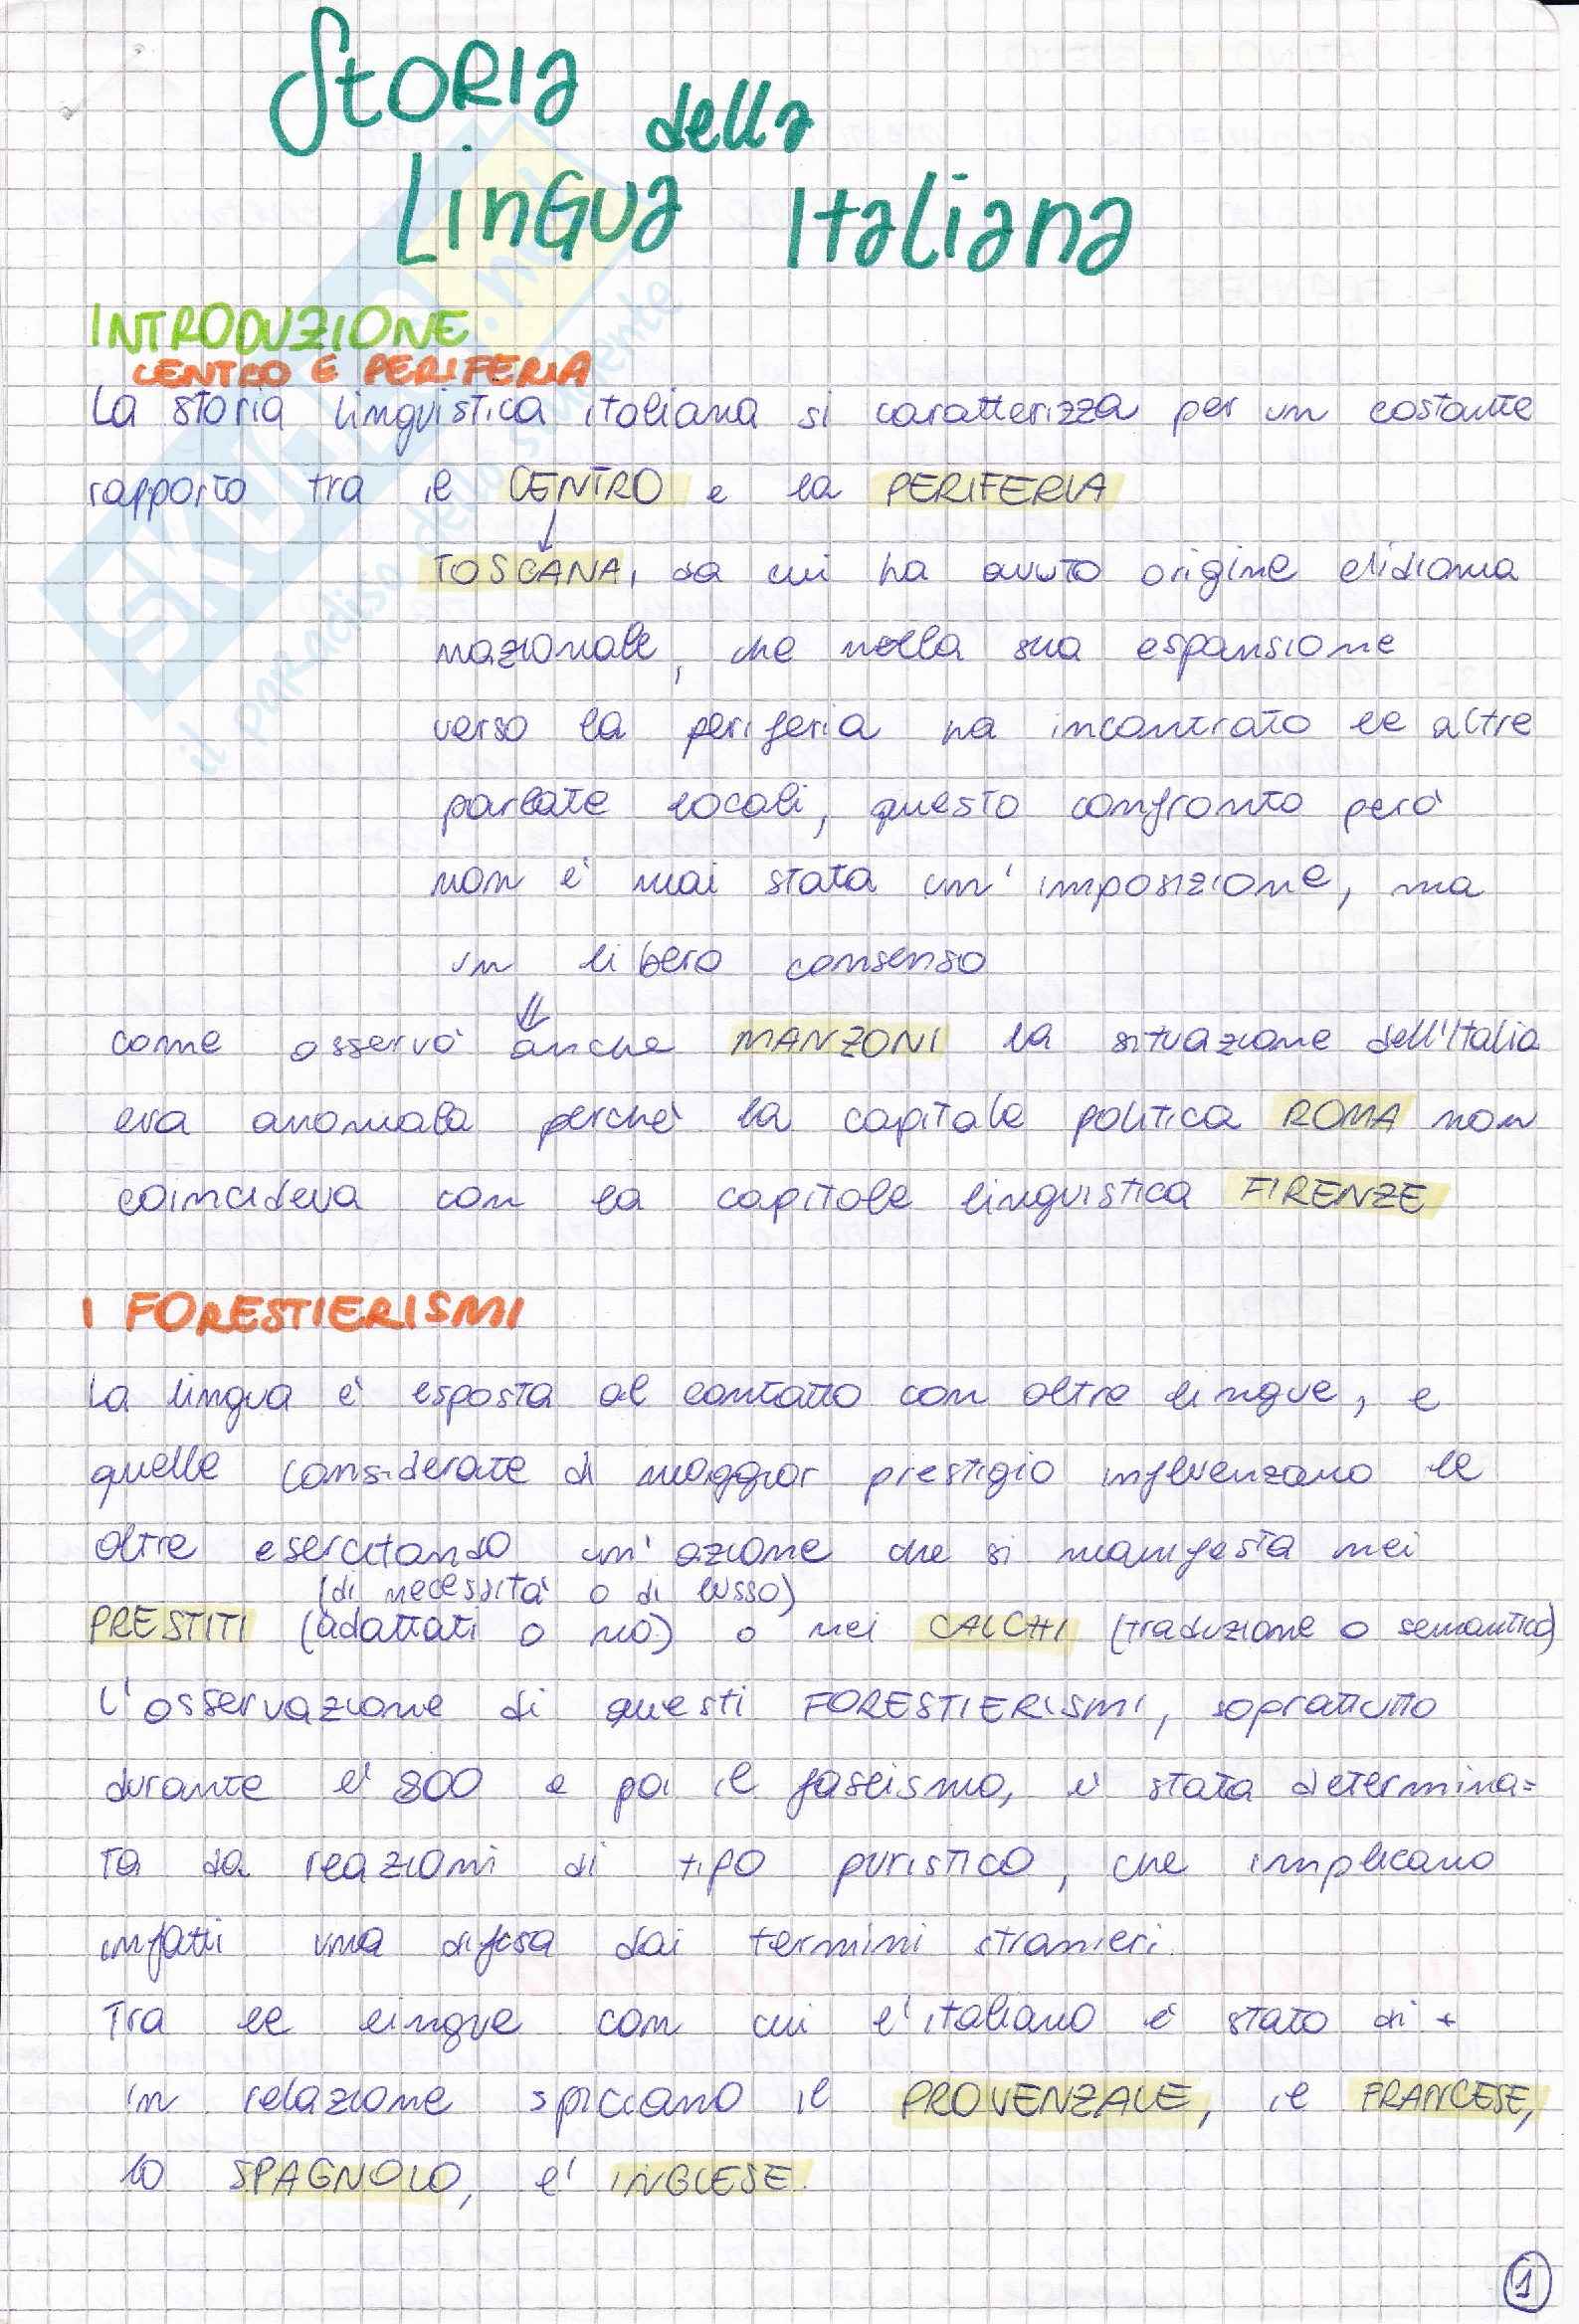 Storia della
Lingua Italiana
INTRODUZIONE
CENTRO E PERIFERIA
La storia linguistica italiana si caratterizza per un costante
rapporto tra il CENTRO e la PERIFERIA
↓
TOSCANA, da cui ha avuto origine l'idioma
nazionale, che nella sua espansione
verso la periferia ha incontrato le altre
parlate locali, questo confronto però
non è mai stata un'imposizione, ma
un libero consenso
⇓
come osservò anche MANZONI la situazione dell'Italia
era anomala perché la capitale politica ROMA non
coincideva con la capitale linguistica FIRENZE
I FORESTIERISMI
La lingua è esposta al contatto con altre lingue, e
quelle considerate di maggior prestigio influenzano le
altre esercitando un'azione che si manifesta nei
(di necessità o di lusso)
PRESTITI (adattati o no) o nei CALCHI (traduzione o semantico)
L'osservazione di questi FORESTIERISMI, soprattutto
durante l'800 e poi il fascismo, è stata determina=
ta da reazioni di tipo puristico, che implicano
infatti una difesa dai termini stranieri.
Tra le lingue con cui l'italiano è stato di +
in relazione spiccano il PROVENZALE, il FRANCESE,
lo SPAGNOLO, l'INGLESE.
1
SKUOLA.net
il paradiso dello studente